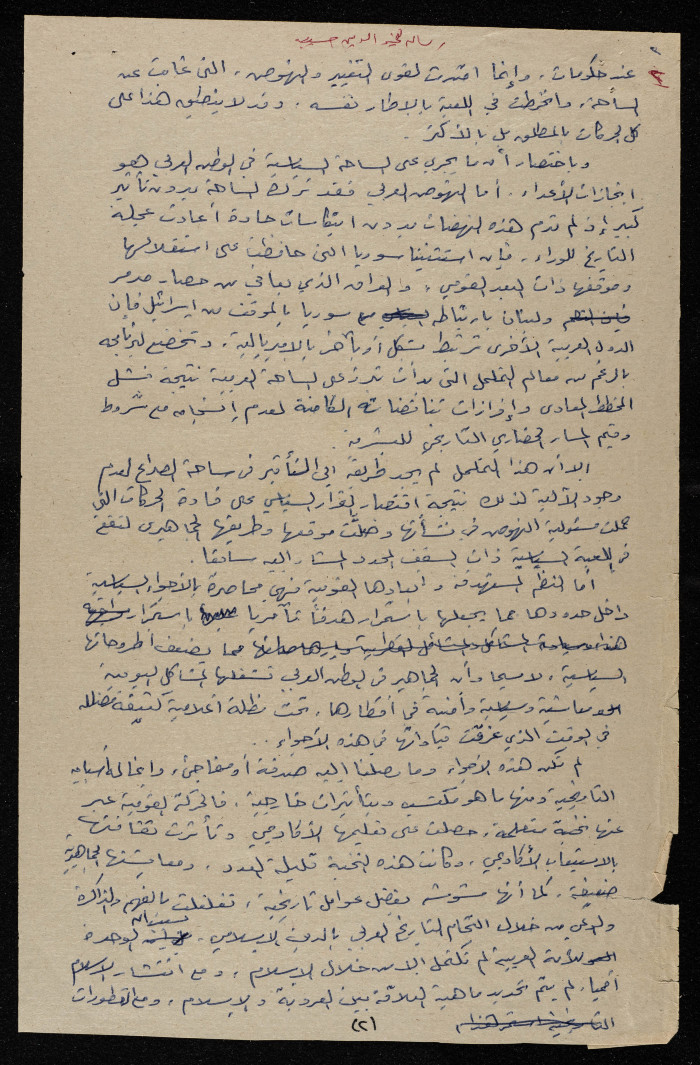 رسالة لخير الدين حسيب
٢
عند حكومات، وإنما امتدت لقوى التغيير والنهوض، التي غابت عن
الساحة، وانخرطت في اللعبة بالإطار نفسه، وقد لا ينطبق هذا على
كل الحركات بالمطلق بل بالأكثر.
وباختصار أن ما يجري على الساحة السياسية في الوطن العربي هو
انجازات الأعداء. أما النهوض العربي فقد ترك الساحة بدون تأثير
كبير إذ لم تدم هذه النهضات بدون انتكاسات حادة أعادت عجلة
التاريخ للوراء، فإن استثنينا سوريا التي حافظت على استقلالها
وموقفها ذات البعد القومي، والعراق الذي يعاني من حصار مدمر
ولبنان بارتباطه مع سوريا بالموقف من إسرائيل فإن
الدول العربية الأخرى ترتبط بشكل أو بآخر بالامبريالية، وتخضع لبرنامجه
بالرغم من معالم التململ التي بدأت تبرز على الساحة العربية نتيجة فشل
المخطط المعادي وإفرازات تناقضاته الكامنة لعدم إنسجامه مع شروط
وقيم المسار الحضاري التاريخي للبشرية.
إلا أن هذا التململ لم يجد طريقه إلى التأثير في ساحة الصراع لعدم
وجود الآلية لذلك نتيجة اقتصار القرار السياسي على قادة الحركات التي
حملت مسئولية النهوض في نشأتها وضلّت موقعها وطريقها الجماهيري لتقع
في اللعبة السياسية ذات السقف المحدد المشار إليه سابقا.
أما النظم المستهدفة وابعادها القومية فهي محاصرة بالأجواء السياسية
داخل حدودها مما يجعلها باستمرار هدفاً تآمرياً باستمرار
مما يضعف أطروحاتها
السياسية، لاسيما وأن الجماهير في الوطن العربي تشغلها المشاكل اليومية
معاشية وسياسية وأمنية في أقطارها، تحت مظلة اعلامية كثيفة مضللة
في الوقت الذي غرقت قياداتها في هذه الأجواء.
لم تكن هذه الأجواء وما وصلنا إليه صدفة أو مفاجئ، وإنما له أسبابه
التاريخية ومنها ما هو مكتسب وبتأثيرات خارجية. فالحركة القومية عبر
عنها نخبة متعلمة، حصلت على تعليمها الأكاديمي وتأثرت ثقافتها
بالاستيعاب الأكاديمي، وكانت هذه النخبة قليلة العدد، ومعايشتها الجماهيرية
ضعيفة. كما أنها مشوشة بفضل عوامل تاريخية، تغلغلت بالفهم والذاكرة
والوعي من خلال التحام التاريخ العربي بالدين الإسلامي، الوحدة
للأمة العربية لم تكتمل إلا من خلال الإسلام، ومع انتشار الإسلام
أمميا، لم يتم تحديد ماهية العلاقة بين العروبة والإسلام، ومع التطورات
التاريخية استمر هذا
(٢)